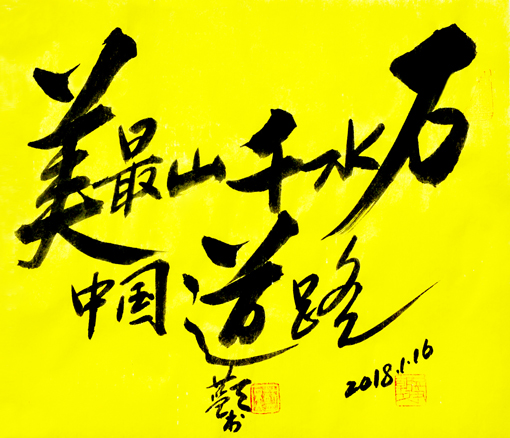 万水千山最美
中国道路
2018.1.16